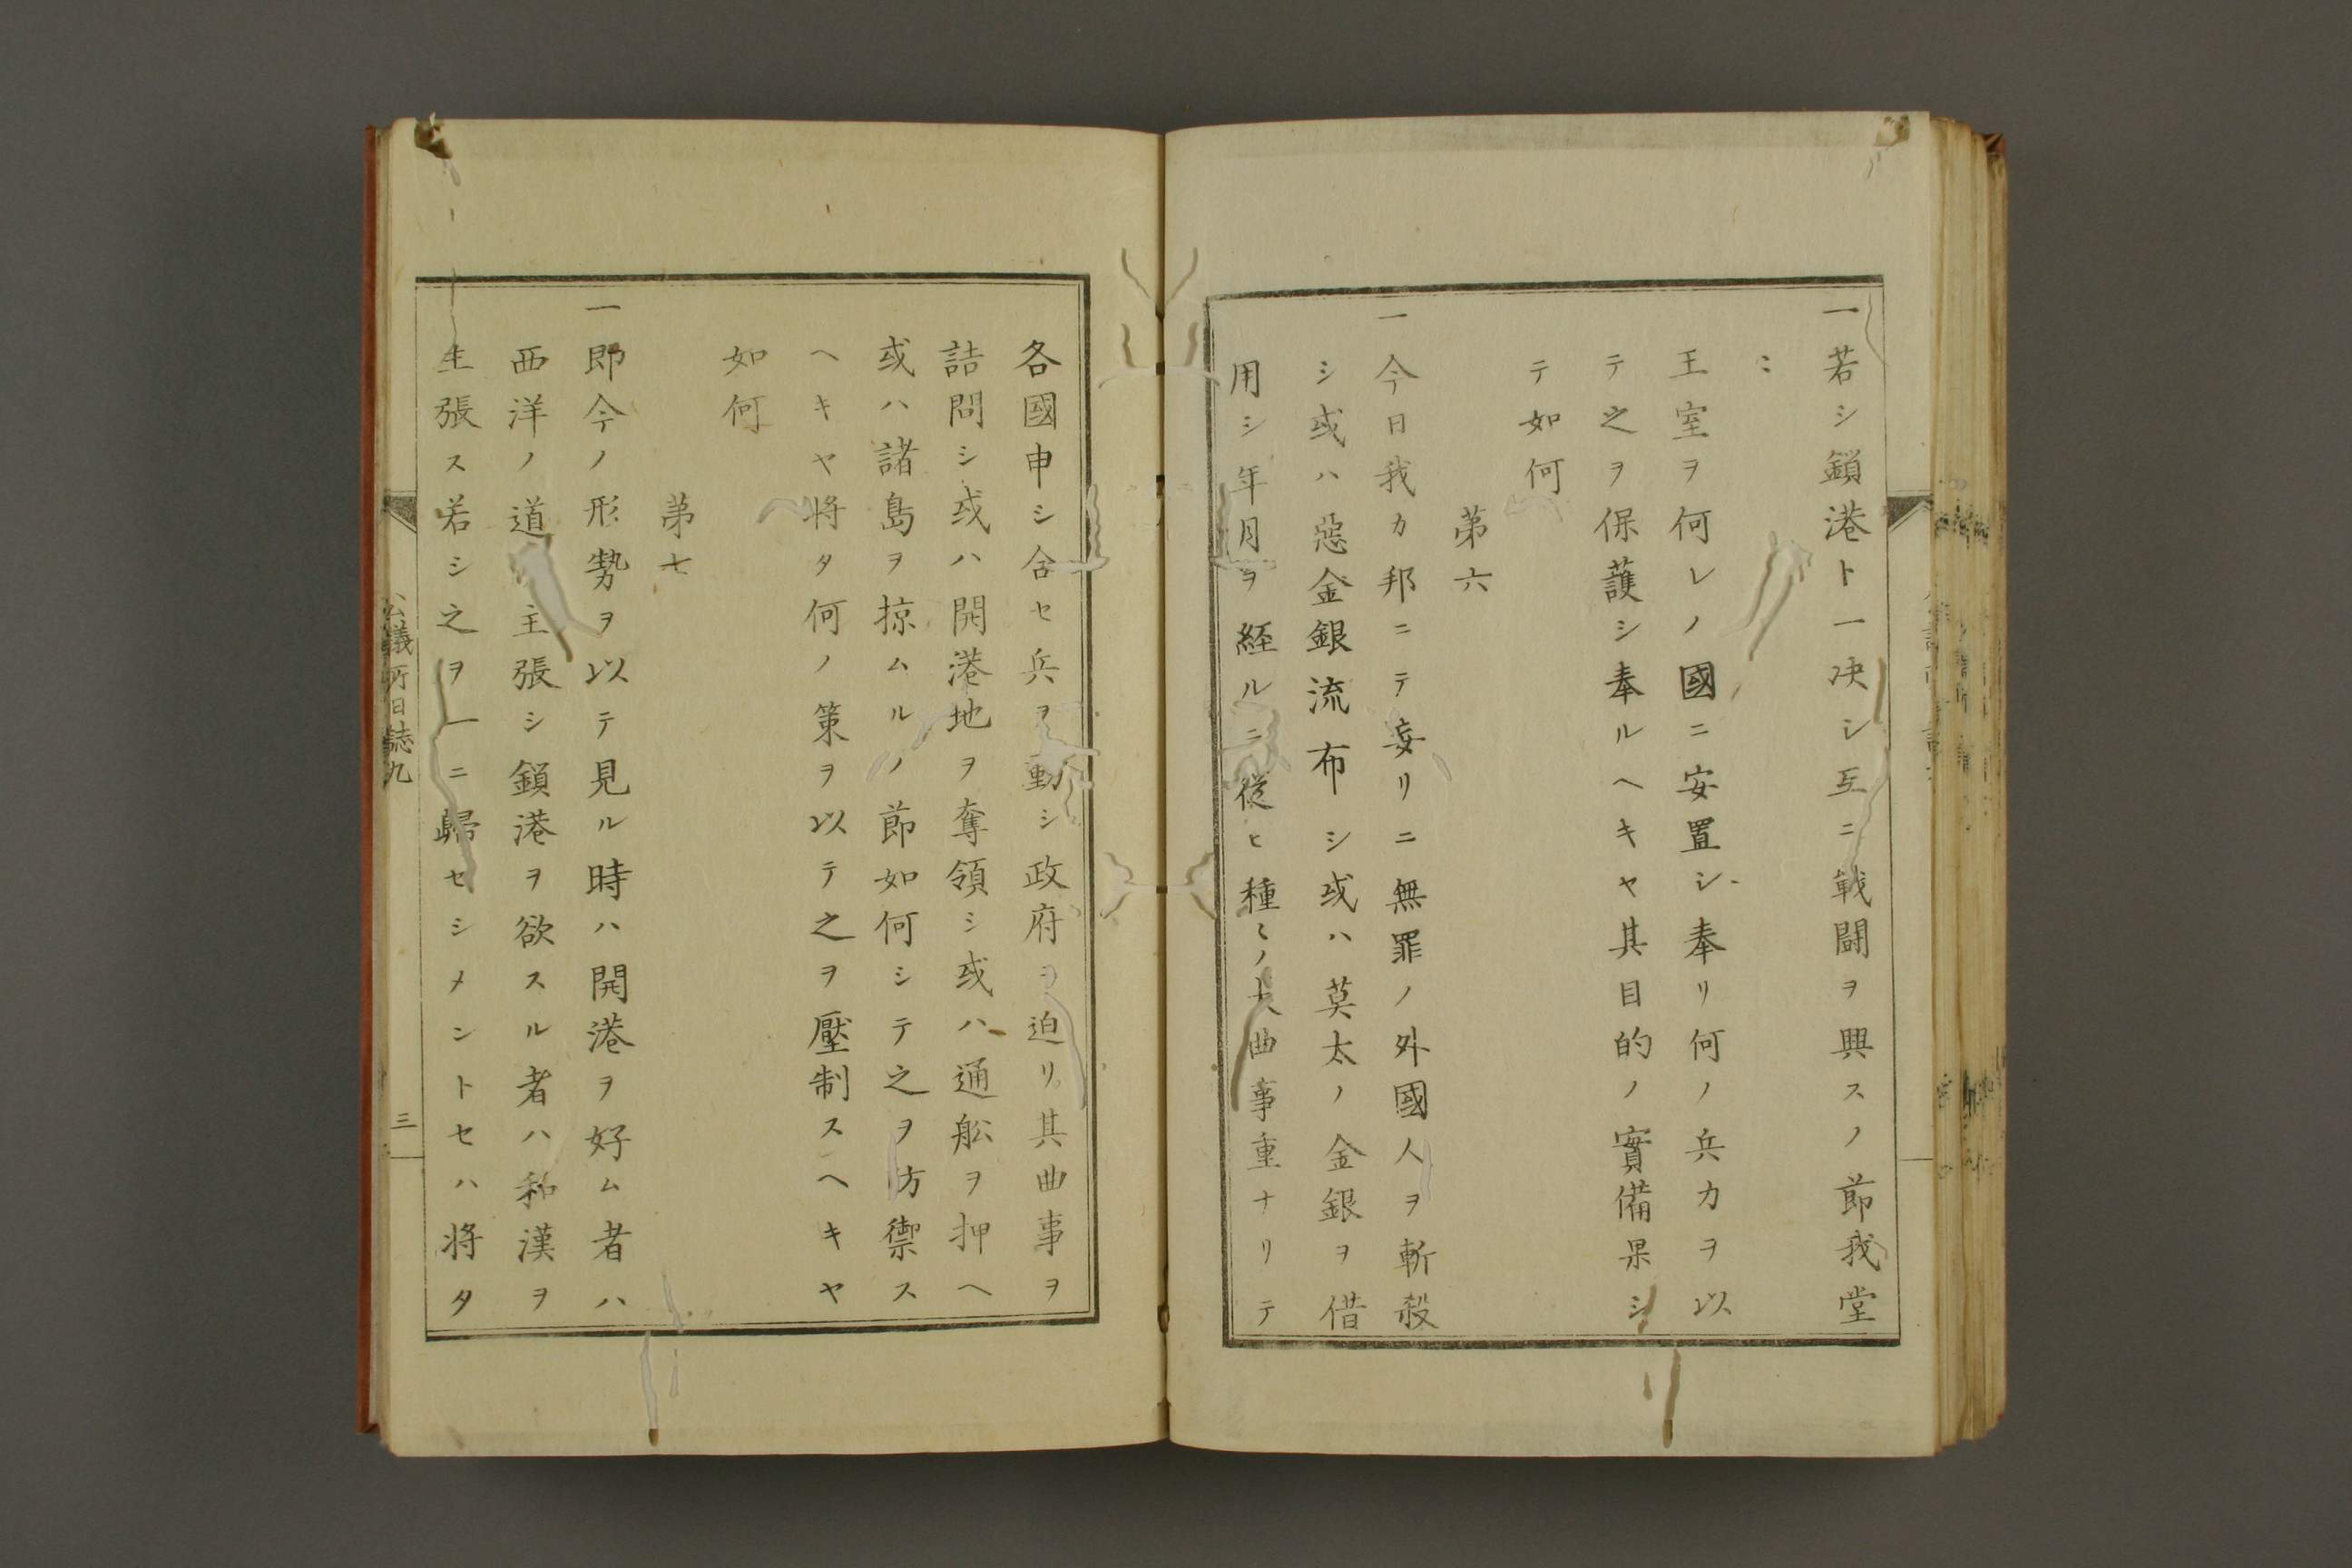 一若シ鎖港ト一決シ互ニ戦闘ヲ興スノ節我堂
々
王室ヲ何レノ國ニ安置シ奉リ何ノ兵力ヲ以
テ之ヲ保護シ奉ルヘキヤ其目的ノ實備果シ
テ如何
第六
一今日我カ邦ニテ妄リニ無罪ノ外國人ヲ斬殺
シ或ハ惡金銀流布シ或ハ莫太ノ金銀ヲ借
用シ年月ヲ経ルニ從ヒ種々ノ大曲事重ナリテ
各國申シ合セ兵ヲ動シ政府ヲ迫リ其曲事ヲ
詰問シ或ハ開港地ヲ奪領シ或ハ通舩ヲ押ヘ
或ハ諸島ヲ掠ムルノ節如何シテ之ヲ防禦ス
ヘキヤ将タ何ノ策ヲ以テ之ヲ壓制スヘキヤ
如何
第七
一即今ノ形勢ヲ以テ見ル時ハ開港ヲ好ム者ハ
西洋ノ道主張シ鎖港ヲ欲スル者ハ和漢ヲ
主張ス若シ之ヲ一ニ歸セシメントセハ将タ
公議所日誌九
三